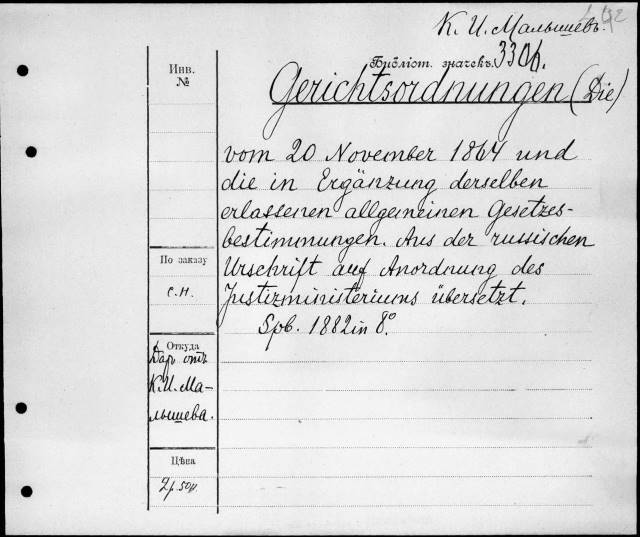 К. И. Малышевъ.
Библіот. значекъ. 3306.
Инв.
№
Gerichtsordnungen (Die)
vom 20 November 1864 und
die in Ergänzung derselben
erlassenen allgemeinen Gesetzes-
bestimmungen. Aus der russischen
Urschrift auf Anordnung des
Justizministeriums übersetzt.
Spb. 1882 in 8°.
По заказу
С.Н.
Откуда
Даръ отъ
К.И.Ма-
лышева.
Цѣна
2р. 50к.